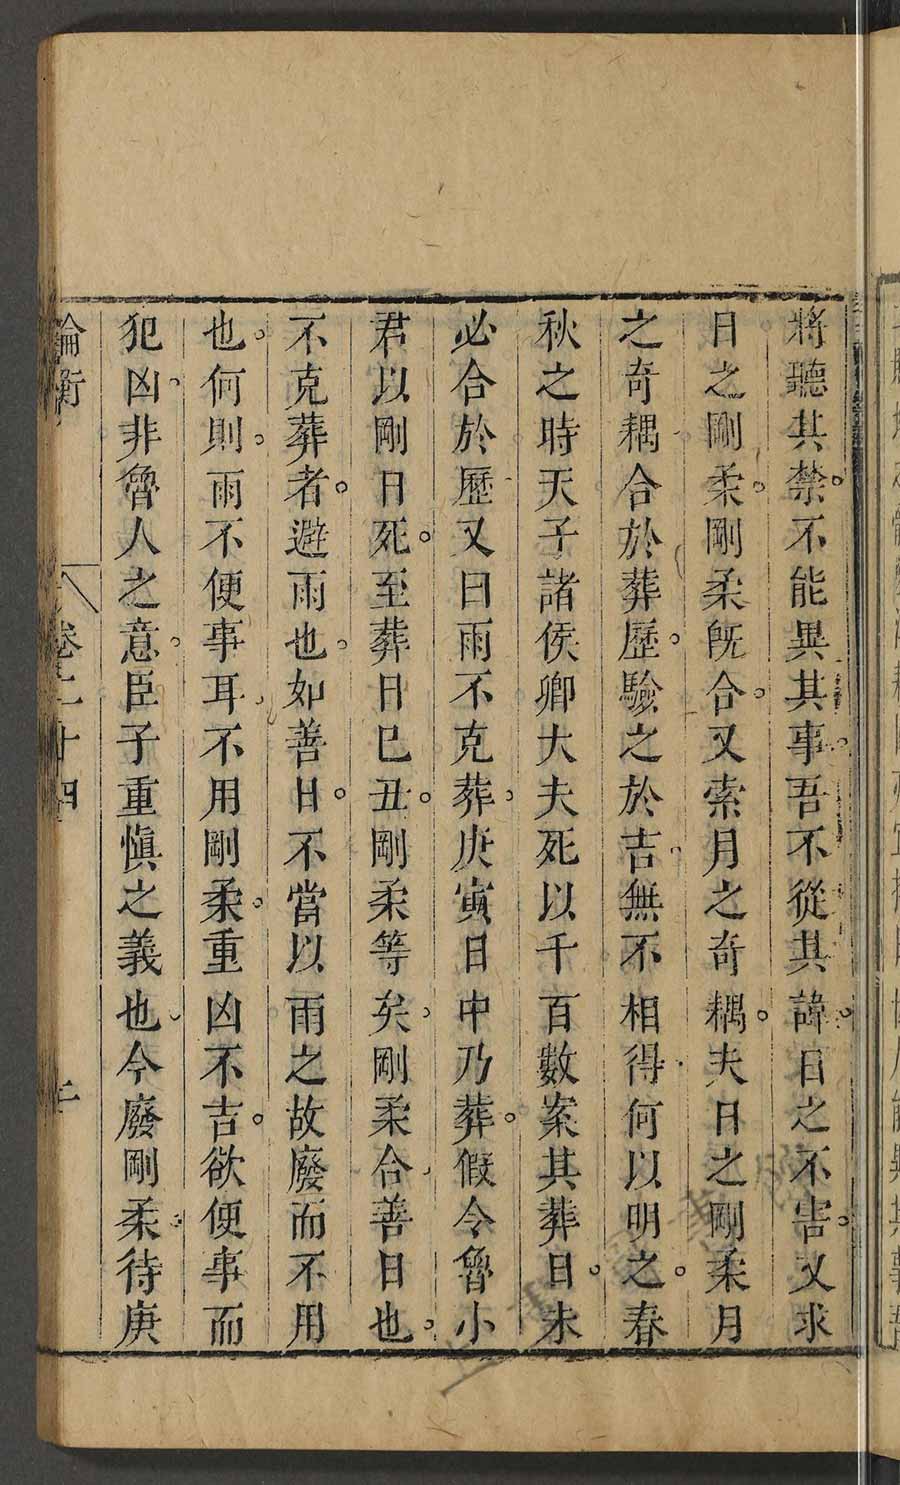 將聽其禁不能異其事吾不從其諱日之不害又求
日之剛柔剛柔旣合又索月之奇耦夫日之剛柔月
之奇耦合於葬歷驗之於吉無不相得何以明之春
秋之時天子諸侯卿大夫死以千百數案其葬日未
必合於歷又曰雨不克葬庚寅日中乃葬假令魯小
君以剛日死至葬日巳丑剛柔等矣剛柔合善日也
不克葬者避雨也如善日不當以雨之故廢而不用
也何則雨不便事耳不用剛柔重凶不吉欲便事而
犯凶非魯人之意臣子重慎之義也今廢剛柔待庚
論衡 卷二十四